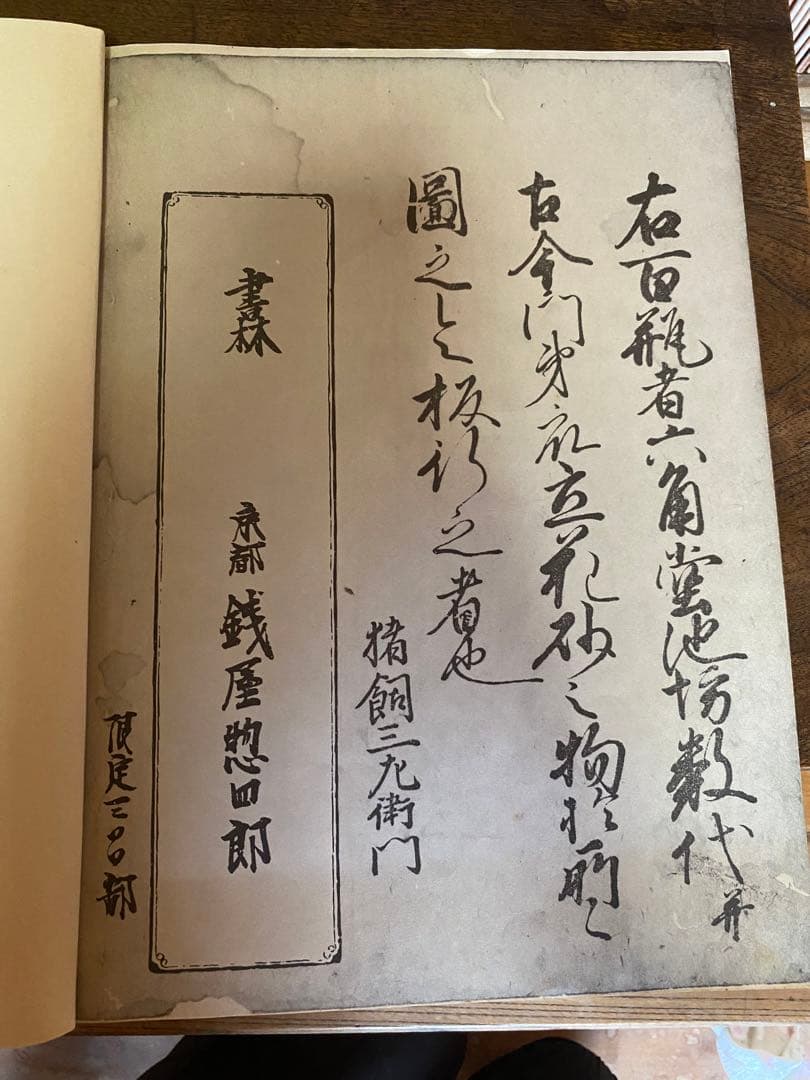 右百瓶者六角堂池坊数代并
古今門弟衆立花砂之物於所々
圖之令板行之者也
猪飼三左衛門
書林
京都 銭屋惣四郎
限定三百部